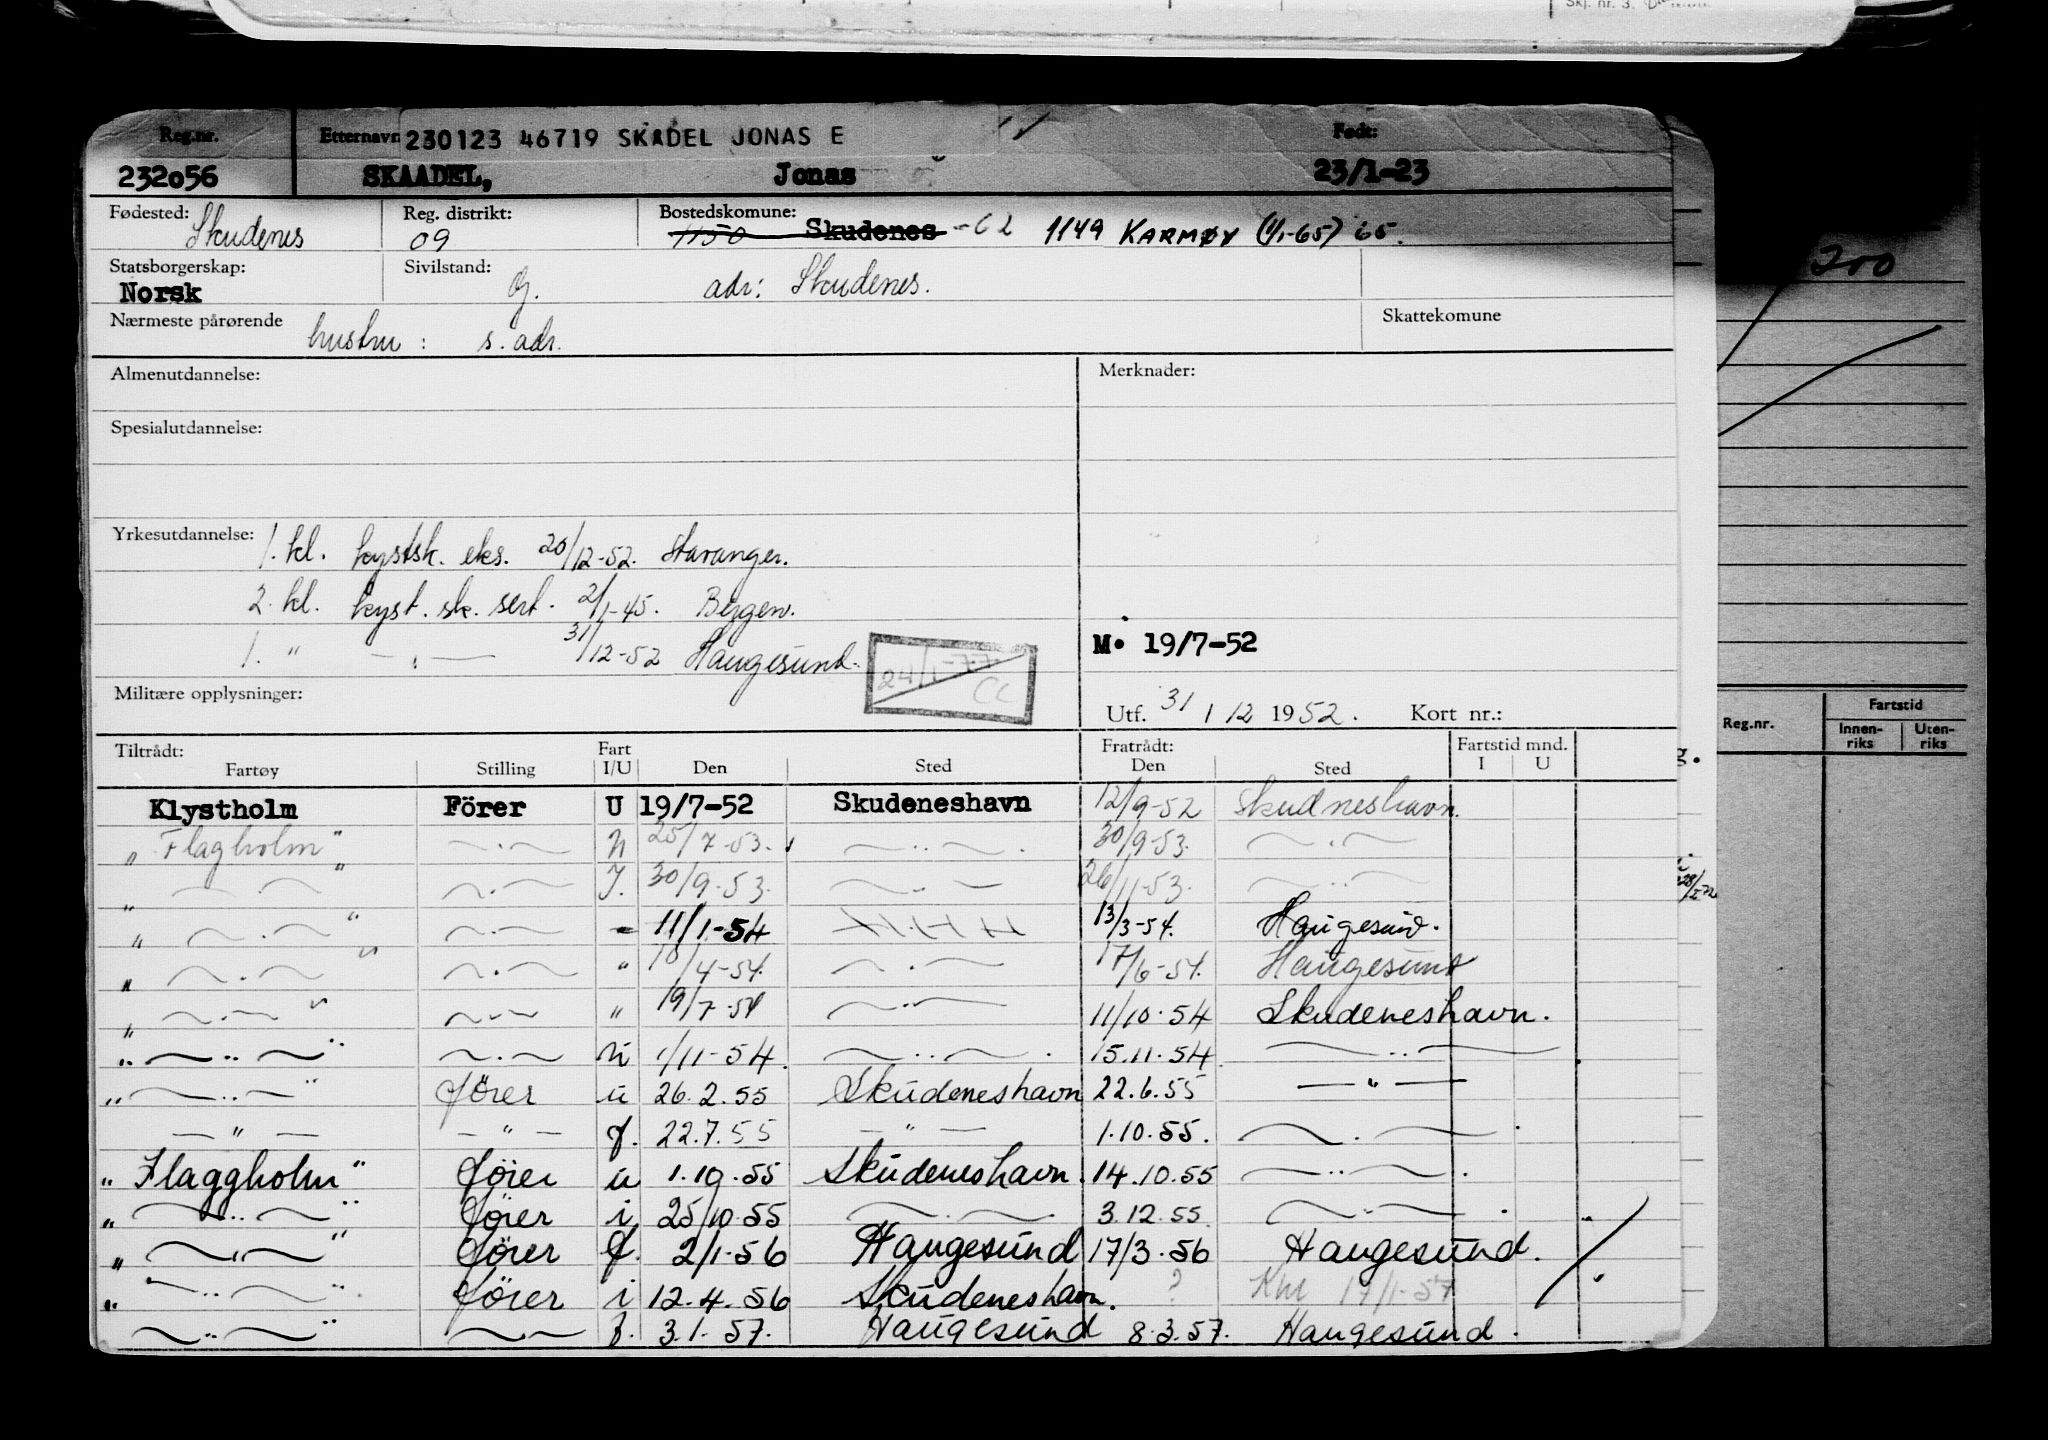 Skj. nr. 3.
Reg.nr. Etternavn 230123 46719 SKADEL JONAS E Født:
232056 SKAADEL, Jonas 23/1-23
Fødested: Skudenes Reg. distrikt: 09 Bostedskomune: 1150 Skudenes -62 1149 KARMØY (1/1-65) 65.
Statsborgerskap: Norsk Sivilstand: g. adr: Skudenes.
Nærmeste pårørende hustru: s. adr. Skattekomune
Almenutdannelse: Merknader:
Spesialutdannelse:
Yrkesutdannelse: 1. kl. kystsk. eks. 20/12-52. Stavanger.
2. kl. kyst. sk. sert. 2/1-45. Bergen.
1. " — " — 31/12-52 Haugesund.
M. 19/7-52
24/1-77 CC
Militære opplysninger: Utf. 31/12 1952. Kort nr.:
Tiltrådt: Fart Fratrådt: Fartstid mnd.
Fartøy Stilling I/U Den Sted Den Sted I U
Klystholm Förer U 19/7-52 Skudeneshavn 12/9-52 Skudneshavn.
" Flagholm" — " — 25/7-53. — " — 30/9-53. — " —
" — " — " — " — I. 30/9-53. — " — 26/11-53. — " —
" — " — " — " — - 11/1-54 13/3-54. Haugesund.
" — " — " — " — " /4-54. — " — 17/6-54. Haugesund
" — " — " — " — " 19/7-54 — " — 11/10-54 Skudeneshavn.
" — " — " — " — u 1/11-54. — " — 15.11.54 — " —
" — " — " förer u 26.2.55 Skudeneshavn 22.6.55 — " —
— " — — " — f. 22.7.55 — " — 1.10.55. — " —
" Flaggholm" förer u 1.10.55 Skudeneshavn. 14.10.55 — " —
" — " — " förer i 25/10.55 — " — 3.12.55. — " —
" — " — " förer f. 2/1-56 Haugesund 17/3.56 Haugesund.
" — " — " förer i 12.4.56 Skudeneshavn. ? 17/1-57
" — " — " — " — f. 3.1.57. Haugesund 8.3.57. Haugesund.
200
Reg.nr. Fartstid
Innenriks Utenriks